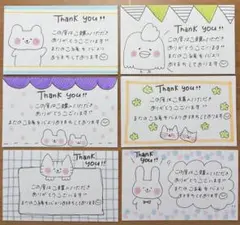 Thank you!!
この度はご購入いただき
ありがとうございます!!
またのご縁を心より
お待ちしております
Thank you!!
この度はご購入いただき
ありがとうございます!!
またのご縁を心より
お待ちしております
Thank you!!
この度はご購入いただき
ありがとうございます!!
またのご縁を心よりお待ちしております
Thank you!!
この度はご購入いただき
ありがとうございます!!
またのご縁を心よりお待ちしております
Thank you!!
この度はご購入いただき
ありがとうございます!!
またのご縁を心よりお待ちしております
Thank you!!
この度はご購入いただき
ありがとうございます!!
またのご縁を心より
お待ちしております